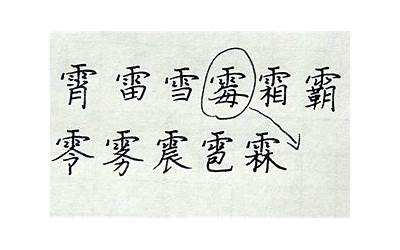 霄雷雪霉霜霸
零雾震雹霖